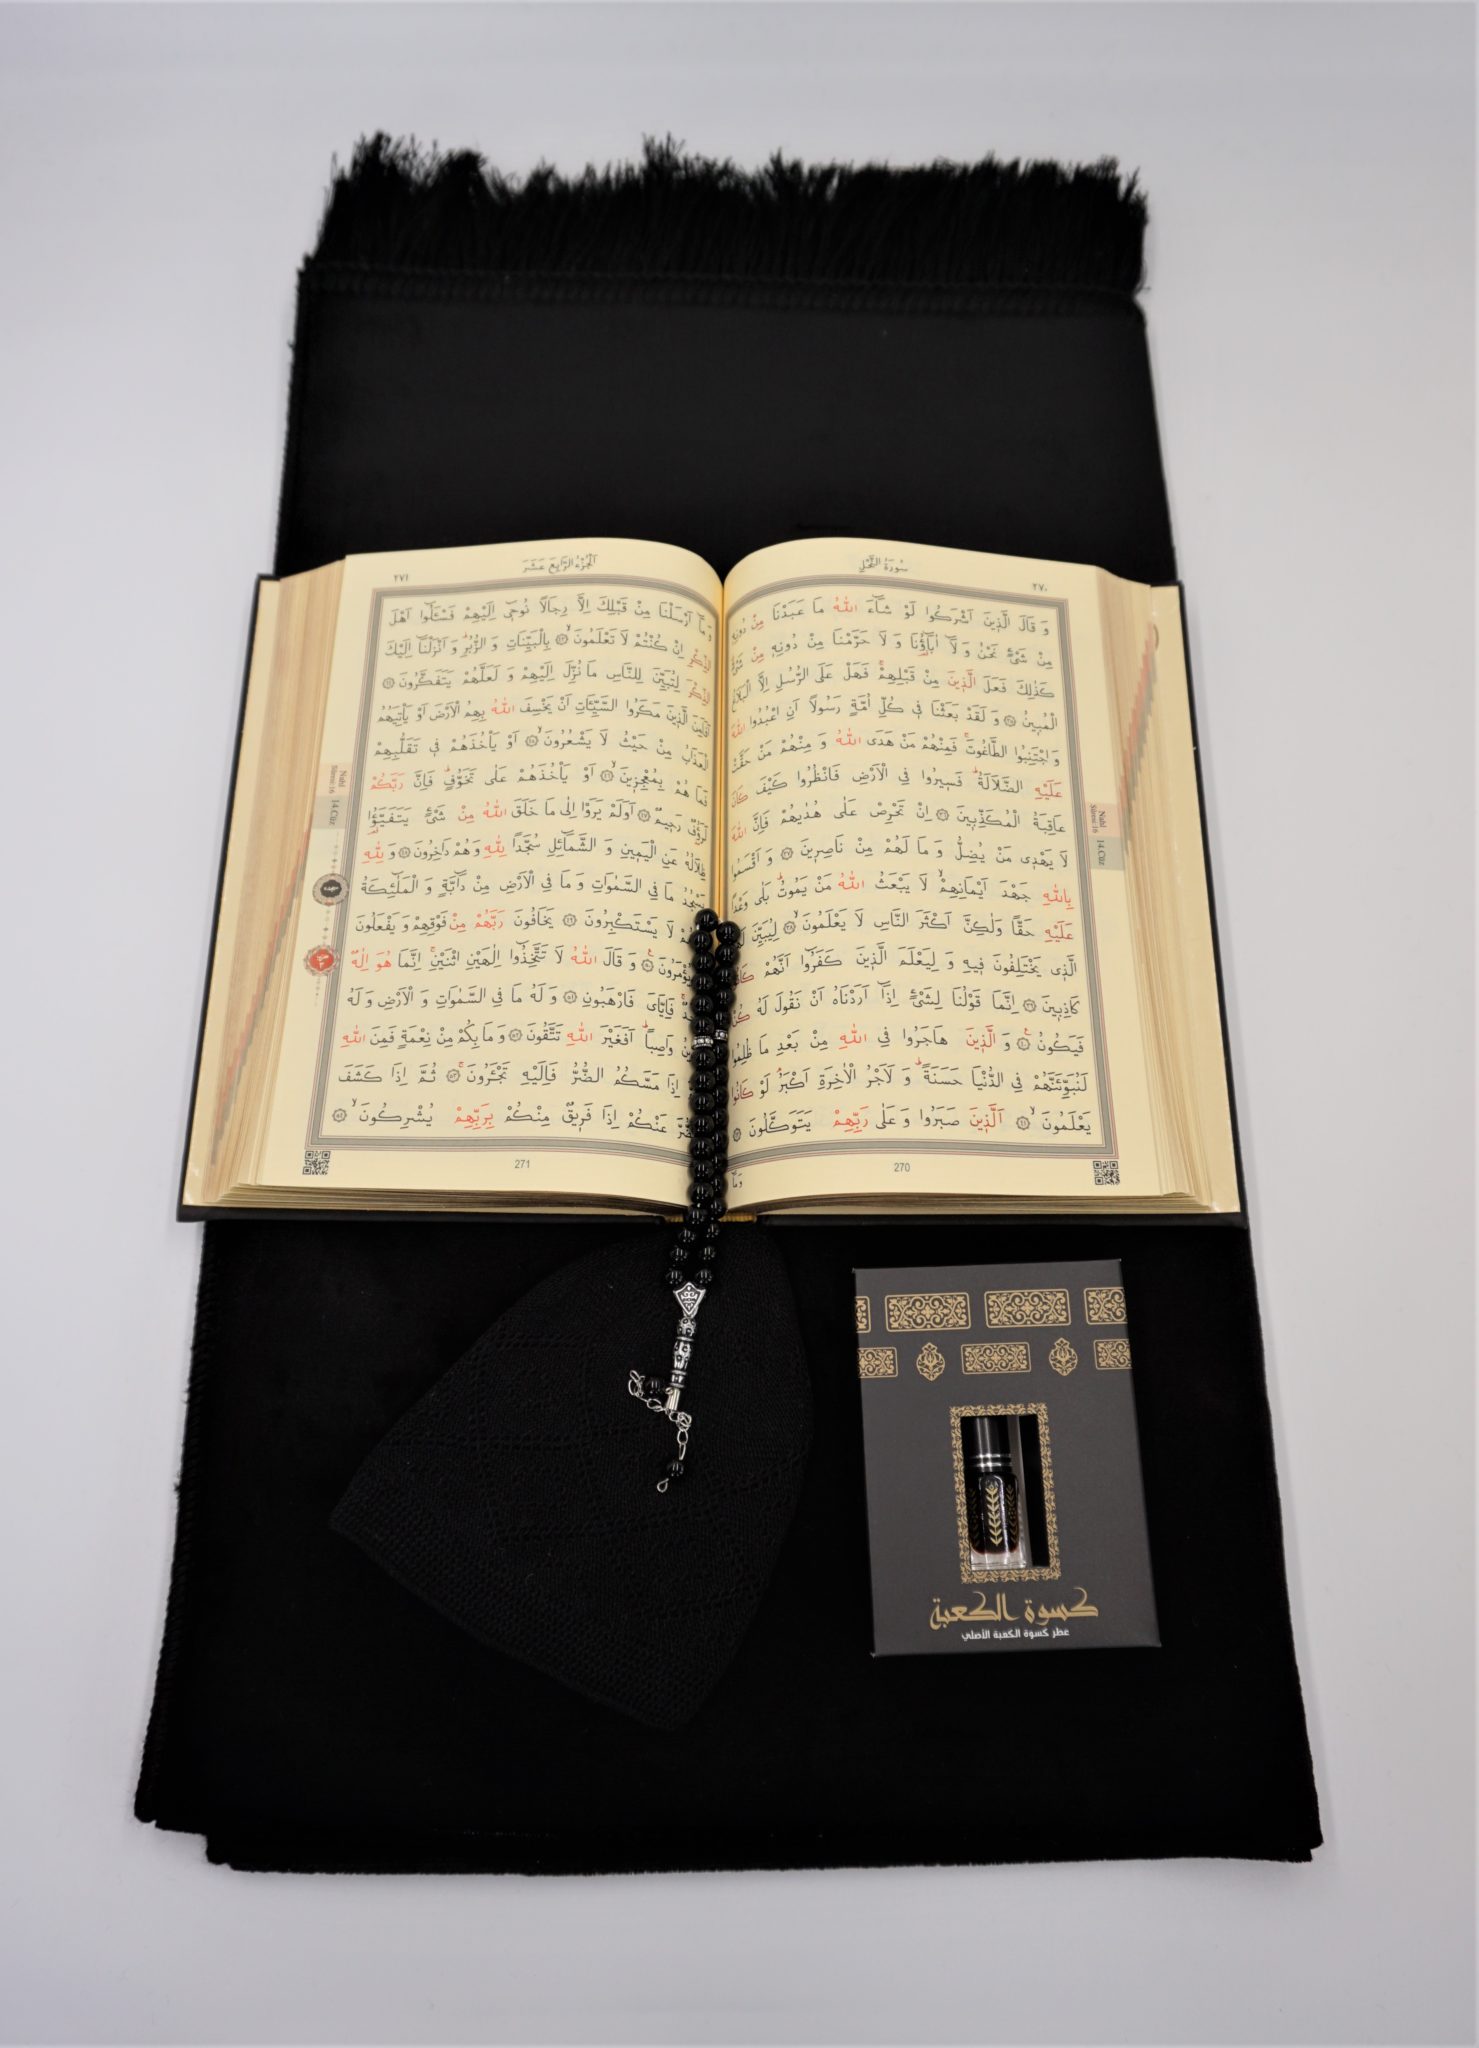 سُورَةُ النَّحْلِ
٢٧٠
وَقَالَ الَّذ۪ينَ اَشْرَكُوا لَوْ شَٓاءَ اللّٰهُ مَا عَبَدْنَا مِنْ دُونِه۪
مِنْ شَيْءٍ نَحْنُ وَلَٓا اٰبَٓاؤُ۬نَا وَلَا حَرَّمْنَا مِنْ دُونِه۪ مِنْ شَيْءٍۜ
كَذٰلِكَ فَعَلَ الَّذ۪ينَ مِنْ قَبْلِهِمْۚ فَهَلْ عَلَى الرُّسُلِ اِلَّا الْبَلَاغُ
الْمُب۪ينُ ﴿٣٥﴾ وَلَقَدْ بَعَثْنَا ف۪ي كُلِّ اُمَّةٍ رَسُولًا اَنِ اعْبُدُوا اللّٰهَ
وَاجْتَنِبُوا الطَّاغُوتَۚ فَمِنْهُمْ مَنْ هَدَى اللّٰهُ وَمِنْهُمْ مَنْ حَقَّتْ
عَلَيْهِ الضَّلَالَةُۜ فَس۪يرُوا فِي الْاَرْضِ فَانْظُرُوا كَيْفَ كَانَ
عَاقِبَةُ الْمُكَذِّب۪ينَ ﴿٣٦﴾ اِنْ تَحْرِصْ عَلٰى هُدٰيهُمْ فَاِنَّ اللّٰهَ
لَا يَهْد۪ي مَنْ يُضِلُّ وَمَا لَهُمْ مِنْ نَاصِر۪ينَ ﴿٣٧﴾ وَاَقْسَمُوا
بِاللّٰهِ جَهْدَ اَيْمَانِهِمْۙ لَا يَبْعَثُ اللّٰهُ مَنْ يَمُوتُۜ بَلٰى وَعْدًا
عَلَيْهِ حَقًّا وَلٰكِنَّ اَكْثَرَ النَّاسِ لَا يَعْلَمُونَۙ ﴿٣٨﴾ لِيُبَيِّنَ
الَّذ۪ي يَخْتَلِفُونَ ف۪يهِ وَلِيَعْلَمَ الَّذ۪ينَ كَفَرُٓوا اَنَّهُمْ
كَاذِب۪ينَ ﴿٣٩﴾ اِنَّمَا قَوْلُنَا لِشَيْءٍ اِذَٓا اَرَدْنَاهُ اَنْ نَقُولَ لَهُ كُنْ
فَيَكُونُ۟ ﴿٤٠﴾ وَالَّذ۪ينَ هَاجَرُوا فِي اللّٰهِ مِنْ بَعْدِ مَا ظُلِمُوا
لَنُبَوِّئَنَّهُمْ فِي الدُّنْيَا حَسَنَةًۜ وَلَاَجْرُ الْاٰخِرَةِ اَكْبَرُۢ لَوْ كَانُوا
يَعْلَمُونَۙ ﴿٤١﴾ اَلَّذ۪ينَ صَبَرُوا وَعَلٰى رَبِّهِمْ يَتَوَكَّلُونَ ﴿٤٢﴾
وَمَٓا
270
Nahl
Sûresi:16
14.Cüz
اَلْجُزْءُ الرَّابِعَ عَشَرَ
٢٧١
وَمَٓا اَرْسَلْنَا مِنْ قَبْلِكَ اِلَّا رِجَالًا نُوح۪ٓي اِلَيْهِمْ فَسْـَٔلُٓوا اَهْلَ
الذِّكْرِ اِنْ كُنْتُمْ لَا تَعْلَمُونَۙ ﴿٤٣﴾ بِالْبَيِّنَاتِ وَالزُّبُرِۜ وَاَنْزَلْنَٓا اِلَيْكَ
الذِّكْرَ لِتُبَيِّنَ لِلنَّاسِ مَا نُزِّلَ اِلَيْهِمْ وَلَعَلَّهُمْ يَتَفَكَّرُونَ ﴿٤٤﴾
اَفَاَمِنَ الَّذ۪ينَ مَكَرُوا السَّيِّـَٔاتِ اَنْ يَخْسِفَ اللّٰهُ بِهِمُ الْاَرْضَ اَوْ يَأْتِيَهُمُ
الْعَذَابُ مِنْ حَيْثُ لَا يَشْعُرُونَۙ ﴿٤٥﴾ اَوْ يَأْخُذَهُمْ ف۪ي تَقَلُّبِهِمْ
فَمَا هُمْ بِمُعْجِز۪ينَۙ ﴿٤٦﴾ اَوْ يَأْخُذَهُمْ عَلٰى تَخَوُّفٍۜ فَاِنَّ رَبَّكُمْ
لَرَؤُ۫فٌ رَح۪يمٌ ﴿٤٧﴾ اَوَلَمْ يَرَوْا اِلٰى مَا خَلَقَ اللّٰهُ مِنْ شَيْءٍ يَتَفَيَّؤُ۬ا
ظِلَالُهُ عَنِ الْيَم۪ينِ وَالشَّمَٓائِلِ سُجَّدًا لِلّٰهِ وَهُمْ دَاخِرُونَ ﴿٤٨﴾ وَلِلّٰهِ
يَسْجُدُ مَا فِي السَّمٰوَاتِ وَمَا فِي الْاَرْضِ مِنْ دَٓابَّةٍ وَالْمَلٰٓئِكَةُ
وَهُمْ لَا يَسْتَكْبِرُونَ ﴿٤٩﴾ يَخَافُونَ رَبَّهُمْ مِنْ فَوْقِهِمْ وَيَفْعَلُونَ
يُؤْمَرُونَ۟ ﴿٥٠﴾ وَقَالَ اللّٰهُ لَا تَتَّخِذُٓوا اِلٰهَيْنِ اثْنَيْنِۚ اِنَّمَا هُوَ اِلٰهٌ
فَاِيَّايَ فَارْهَبُونِ ﴿٥١﴾ وَلَهُ مَا فِي السَّمٰوَاتِ وَالْاَرْضِ وَلَهُ
وَاصِبًاۜ اَفَغَيْرَ اللّٰهِ تَتَّقُونَ ﴿٥٢﴾ وَمَا بِكُمْ مِنْ نِعْمَةٍ فَمِنَ اللّٰهِ
اِذَا مَسَّكُمُ الضُّرُّ فَاِلَيْهِ تَجْـَٔرُونَۚ ﴿٥٣﴾ ثُمَّ اِذَا كَشَفَ
الضُّرَّ عَنْكُمْ اِذَا فَر۪يقٌ مِنْكُمْ بِرَبِّهِمْ يُشْرِكُونَۙ ﴿٥٤﴾
271
Nahl
Sûresi:16
14.Cüz
كسوة الكعبة
عطر كسوة الكعبة الأصلي